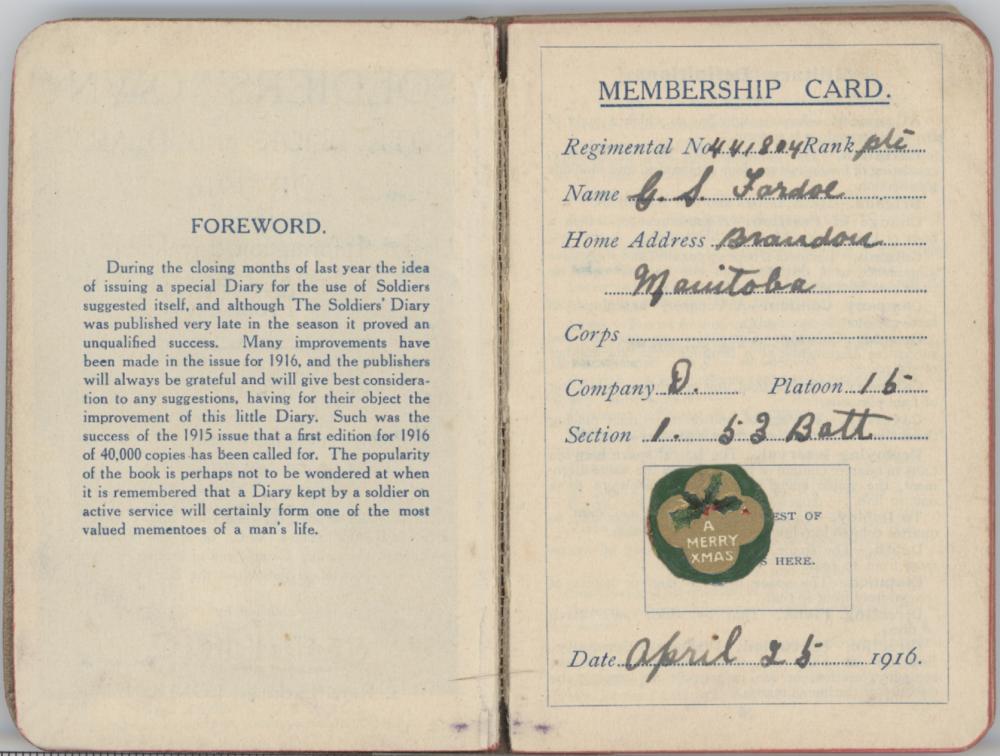 FOREWORD.
During the closing months of last year the idea
of issuing a special Diary for the use of Soldiers
suggested itself, and although The Soldiers' Diary
was published very late in the season it proved an
unqualified success. Many improvements have
been made in the issue for 1916, and the publishers
will always be grateful and will give best considera-
tion to any suggestions, having for their object the
improvement of this little Diary. Such was the
success of the 1915 issue that a first edition for 1916
of 40,000 copies has been called for. The popularity
of the book is perhaps not to be wondered at when
it is remembered that a Diary kept by a soldier on
active service will certainly form one of the most
valued mementoes of a man's life.
MEMBERSHIP CARD.
Regimental No. 441804 Rank pte
Name G. S. Fardoe
Home Address Brandon
Manitoba
Corps
Company D. Platoon 15
Section 1. 53 Batt
EST OF
A
MERRY
XMAS
S HERE.
Date April 25 1916.